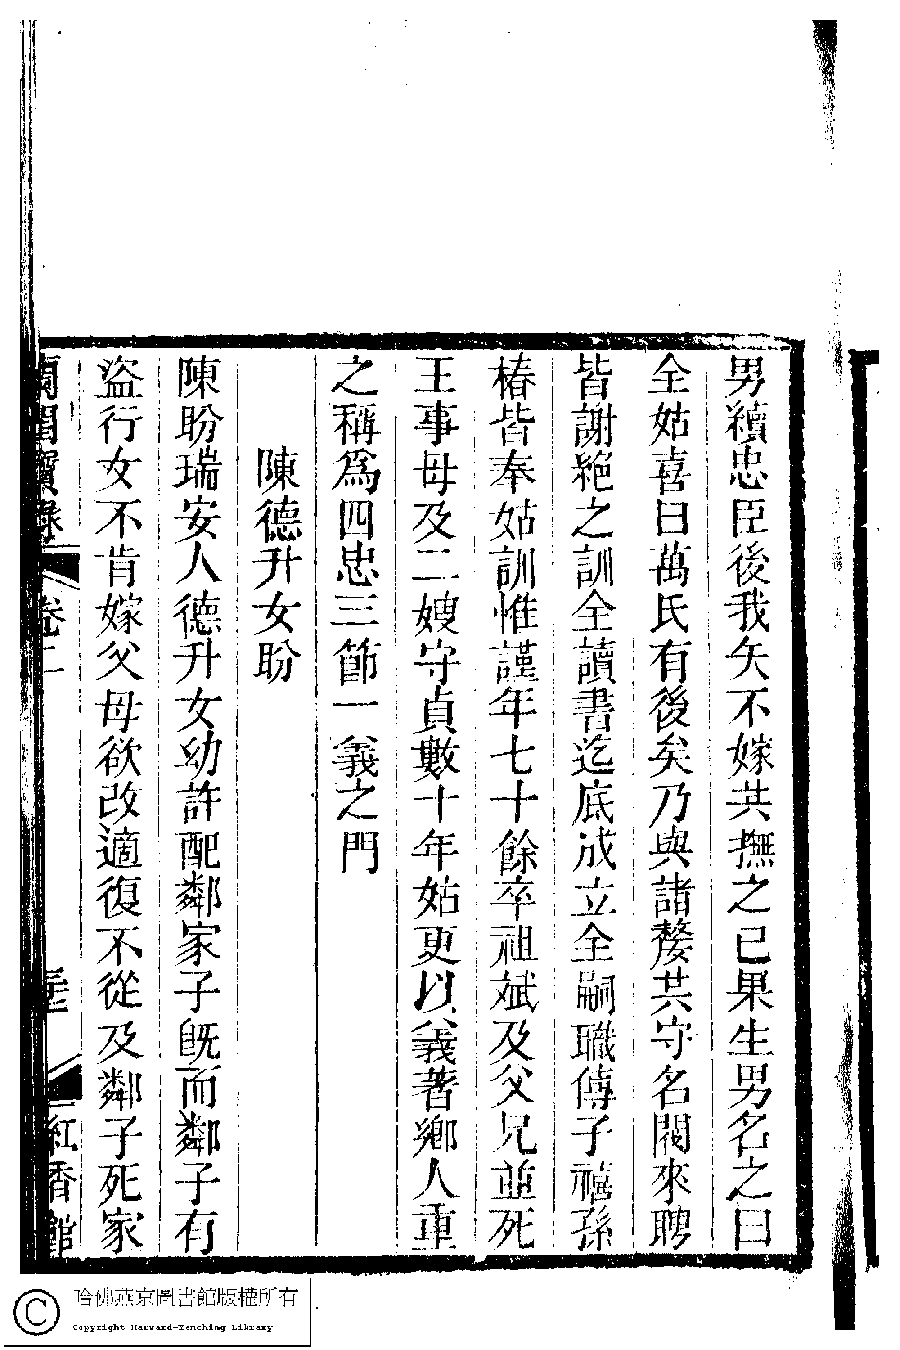 男續忠臣後我矢不嫁共撫之已果生男名之曰
全姑喜曰萬氏有後矣乃與諸嫠共守名閥來聘
皆謝絕之訓全讀書迄底成立全嗣職傳子禧孫
椿皆奉姑訓惟謹年七十餘卒祖斌及父兄並死
王事母及二嫂守貞數十年姑更以義著鄉人重
之稱爲四忠三節一義之門
陳德升女盼
陳盼瑞安人德升女幼許配鄰家子既而鄰子有
盜行女不肯嫁父母欲改適復不從及鄰子死家
蘭閨寶錄 卷二 三 紅香館
哈佛燕京圖書館版權所有
Copyright Harvard-Yenching Library